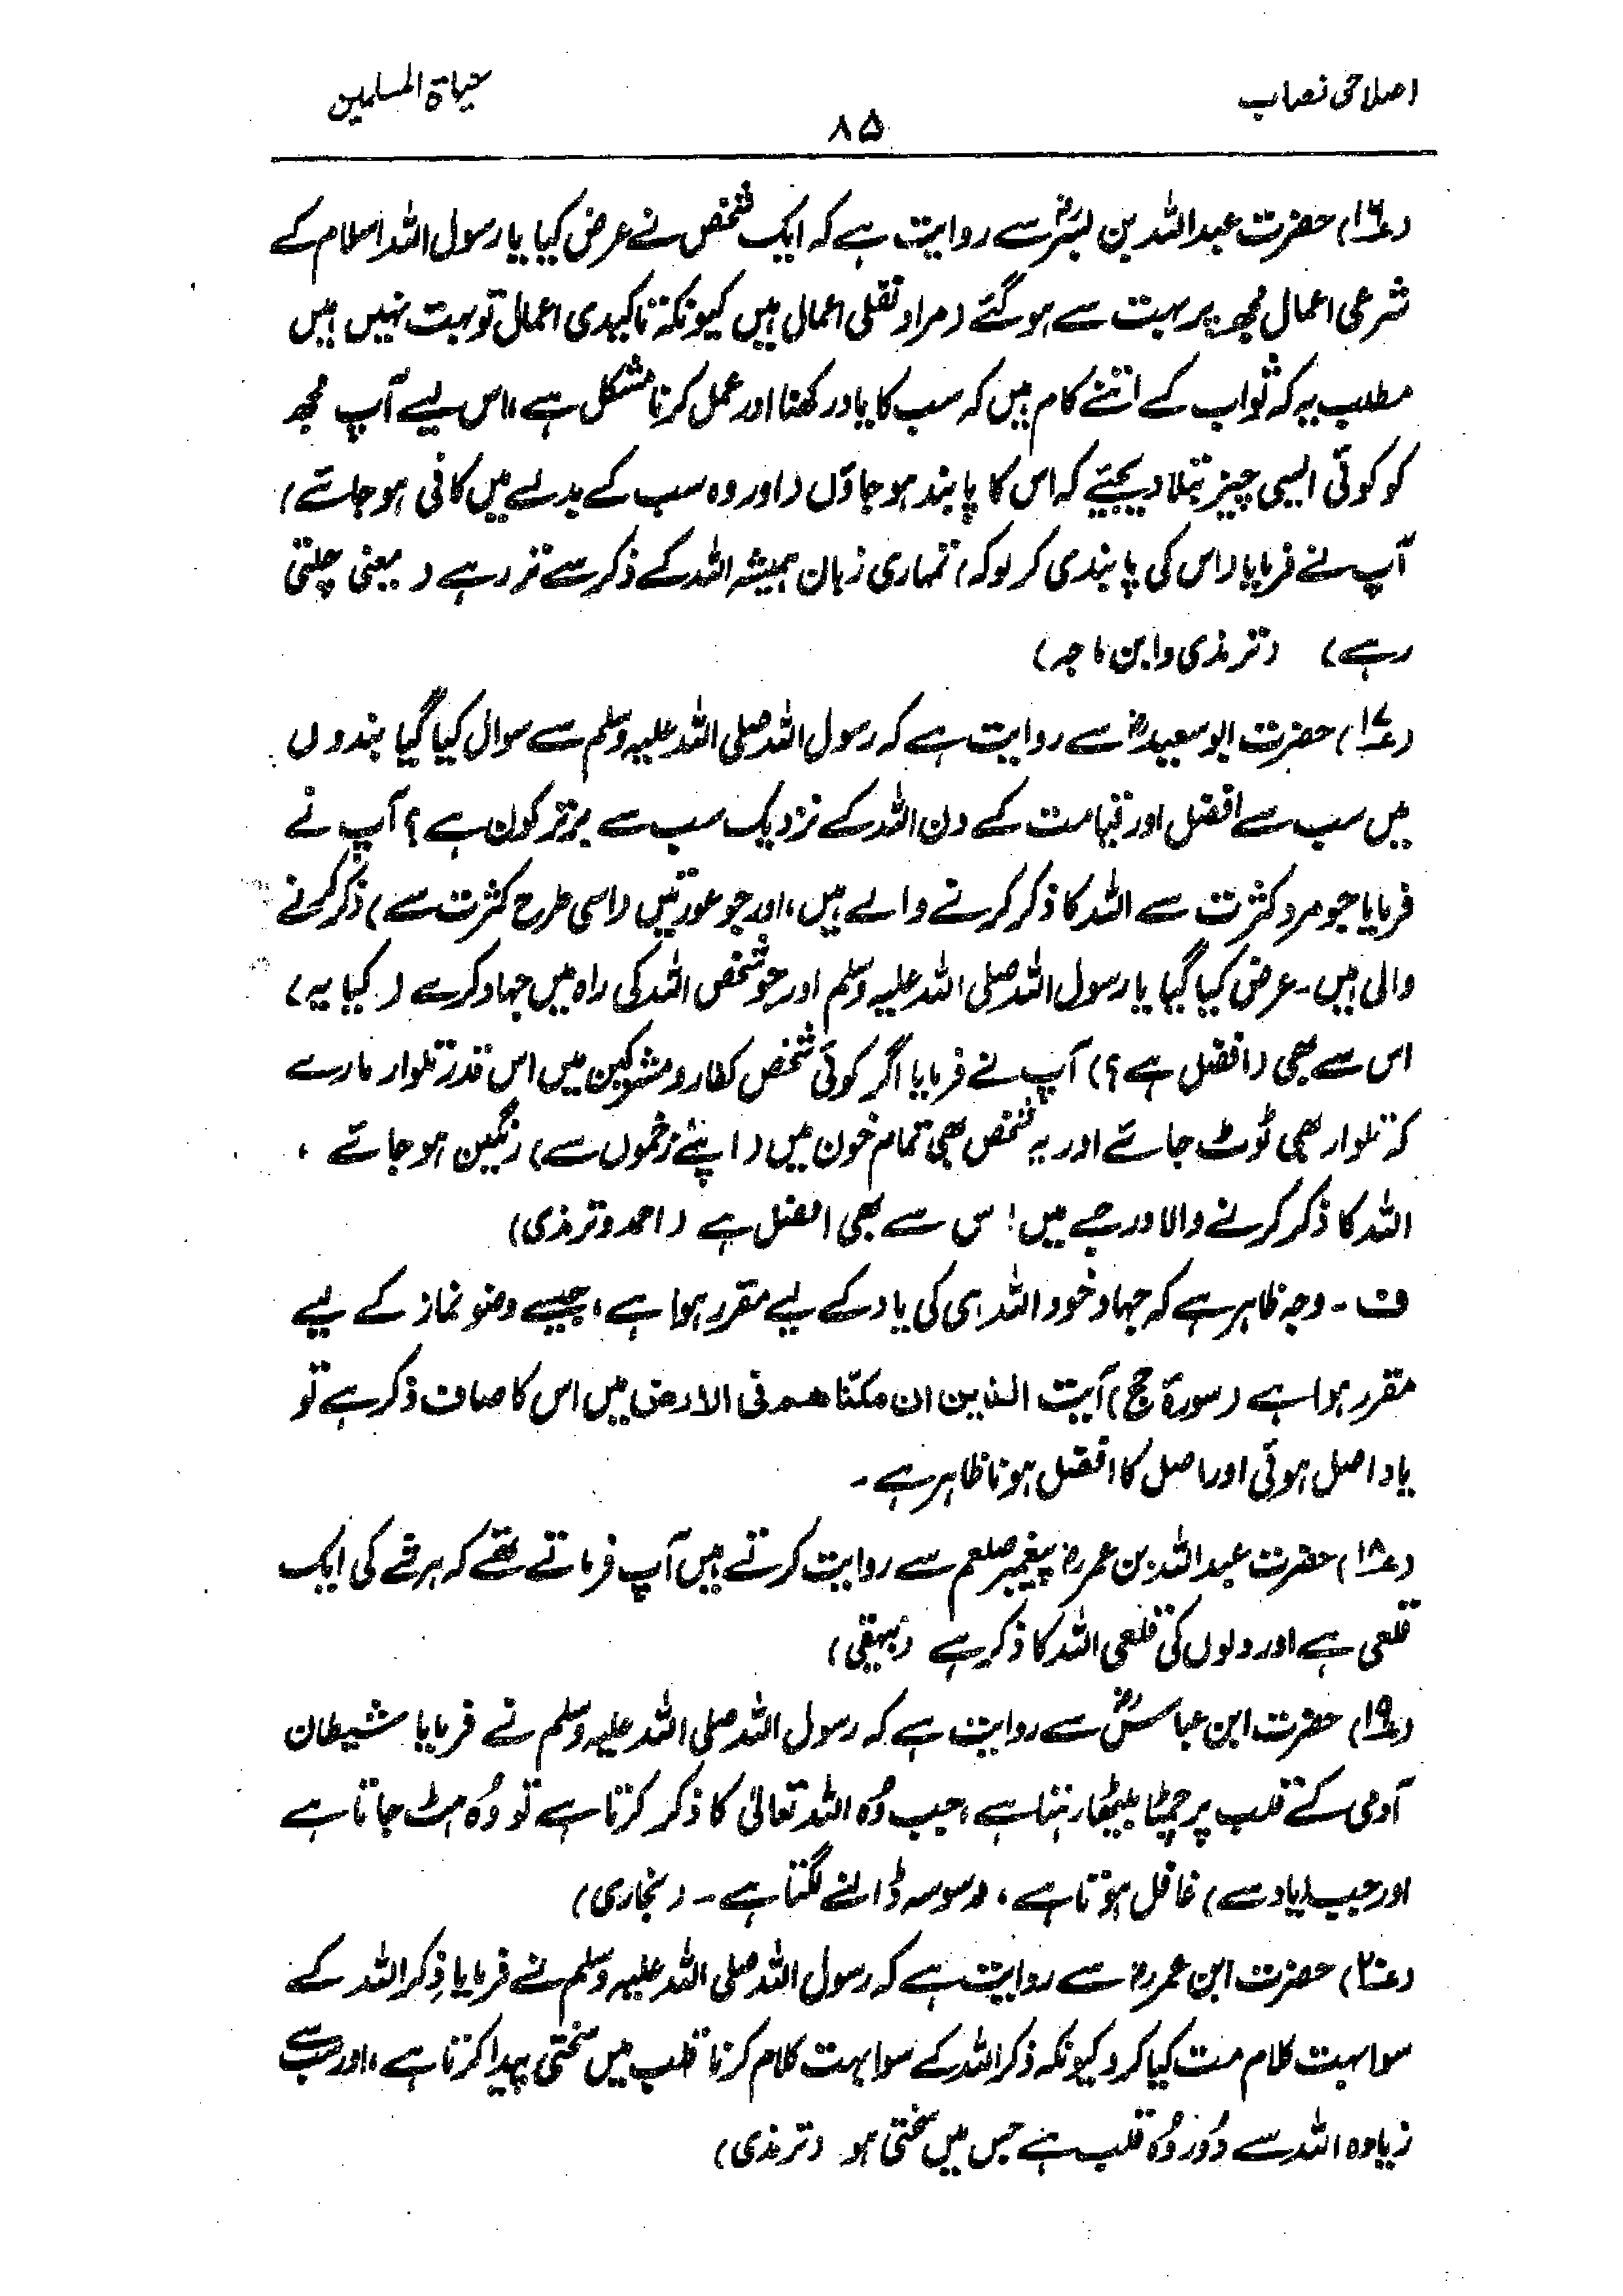 اصلاحی نصاب
حیاة المسلمین
۸۵
(۱۶) حضرت عبداللہ بن بسرؓ سے روایت ہے کہ ایک شخص نے عرض کیا یا رسول اللہ اسلام کے
شرعی اعمال مجھ پر بہت سے ہو گئے (مراد نفلی اعمال ہیں کیونکہ تاکیدی اعمال تو بہت نہیں ہیں
مطلب یہ کہ ثواب کے اتنے کام ہیں کہ سب کا یاد رکھنا اور عمل کرنا مشکل ہے، اس لیے آپ مجھ
کو کوئی ایسی چیز بتلا دیجئے کہ اس کا پابند ہو جاؤں (اور وہ سب کے بدلے میں کافی ہو جائے)
آپ نے فرمایا (اس کی پابندی کر لو کہ) تمہاری زبان ہمیشہ اللہ کے ذکر سے تر رہے (یعنی چلتی
رہے) (ترمذی و ابن ماجہ)
(۱۷) حضرت ابوسعیدؓ سے روایت ہے کہ رسول اللہ صلی اللہ علیہ وسلم سے سوال کیا گیا بندوں
میں سب سے افضل اور قیامت کے دن اللہ کے نزدیک سب سے برتر کون ہے؟ آپ نے
فرمایا جو مرد کثرت سے اللہ کا ذکر کرنے والے ہیں، اور جو عورتیں (اسی طرح کثرت سے) ذکر کرنے
والی ہیں۔ عرض کیا گیا یا رسول اللہ صلی اللہ علیہ وسلم اور جو شخص اللہ کی راہ میں جہاد کرے (کیا یہ)
اس سے بھی (افضل ہے؟) آپ نے فرمایا اگر کوئی شخص کفار و مشرکین میں اس قدر تلوار مارے
کہ تلوار بھی ٹوٹ جائے اور یہ شخص بھی تمام خون میں (اپنے زخموں سے) رنگین ہو جائے،
اللہ کا ذکر کرنے والا درجے میں اس سے بھی افضل ہے (احمد و ترمذی)
ف۔ وجہ ظاہر ہے کہ جہاد خود اللہ ہی کی یاد کے لیے مقرر ہوا ہے، جیسے وضو نماز کے لیے
مقرر ہوا ہے (سورۃ حج) آیت الذین ان مکناھم فی الارض میں اس کا صاف ذکر ہے تو
یاد اصل ہوئی اور اصل کا افضل ہونا ظاہر ہے۔
(۱۸) حضرت عبداللہ بن عمرؓ پیغمبر صلعم سے روایت کرتے ہیں آپ فرماتے تھے کہ ہر شے کی ایک
قلعی ہے اور دلوں کی قلعی اللہ کا ذکر ہے (بیہقی)
(۱۹) حضرت ابن عباسؓ سے روایت ہے کہ رسول اللہ صلی اللہ علیہ وسلم نے فرمایا شیطان
آدمی کے قلب پر چمٹا بیٹھا رہتا ہے، جب وُہ اللہ تعالیٰ کا ذکر کرتا ہے تو وُہ ہٹ جاتا ہے
اور جب (یاد سے) غافل ہوتا ہے، وسوسہ ڈالنے لگتا ہے۔ (بخاری)
(۲۰) حضرت ابن عمرؓ سے روایت ہے کہ رسول اللہ صلی اللہ علیہ وسلم نے فرمایا ذِکر اللہ کے
سوا بہت کلام مت کیا کرو کیونکہ ذکر اللہ کے سوا بہت کلام کرنا قلب میں سختی پیدا کرتا ہے، اور سب سے
زیادہ اللہ سے دُور وُہ قلب ہے جس میں سختی ہو (ترمذی)